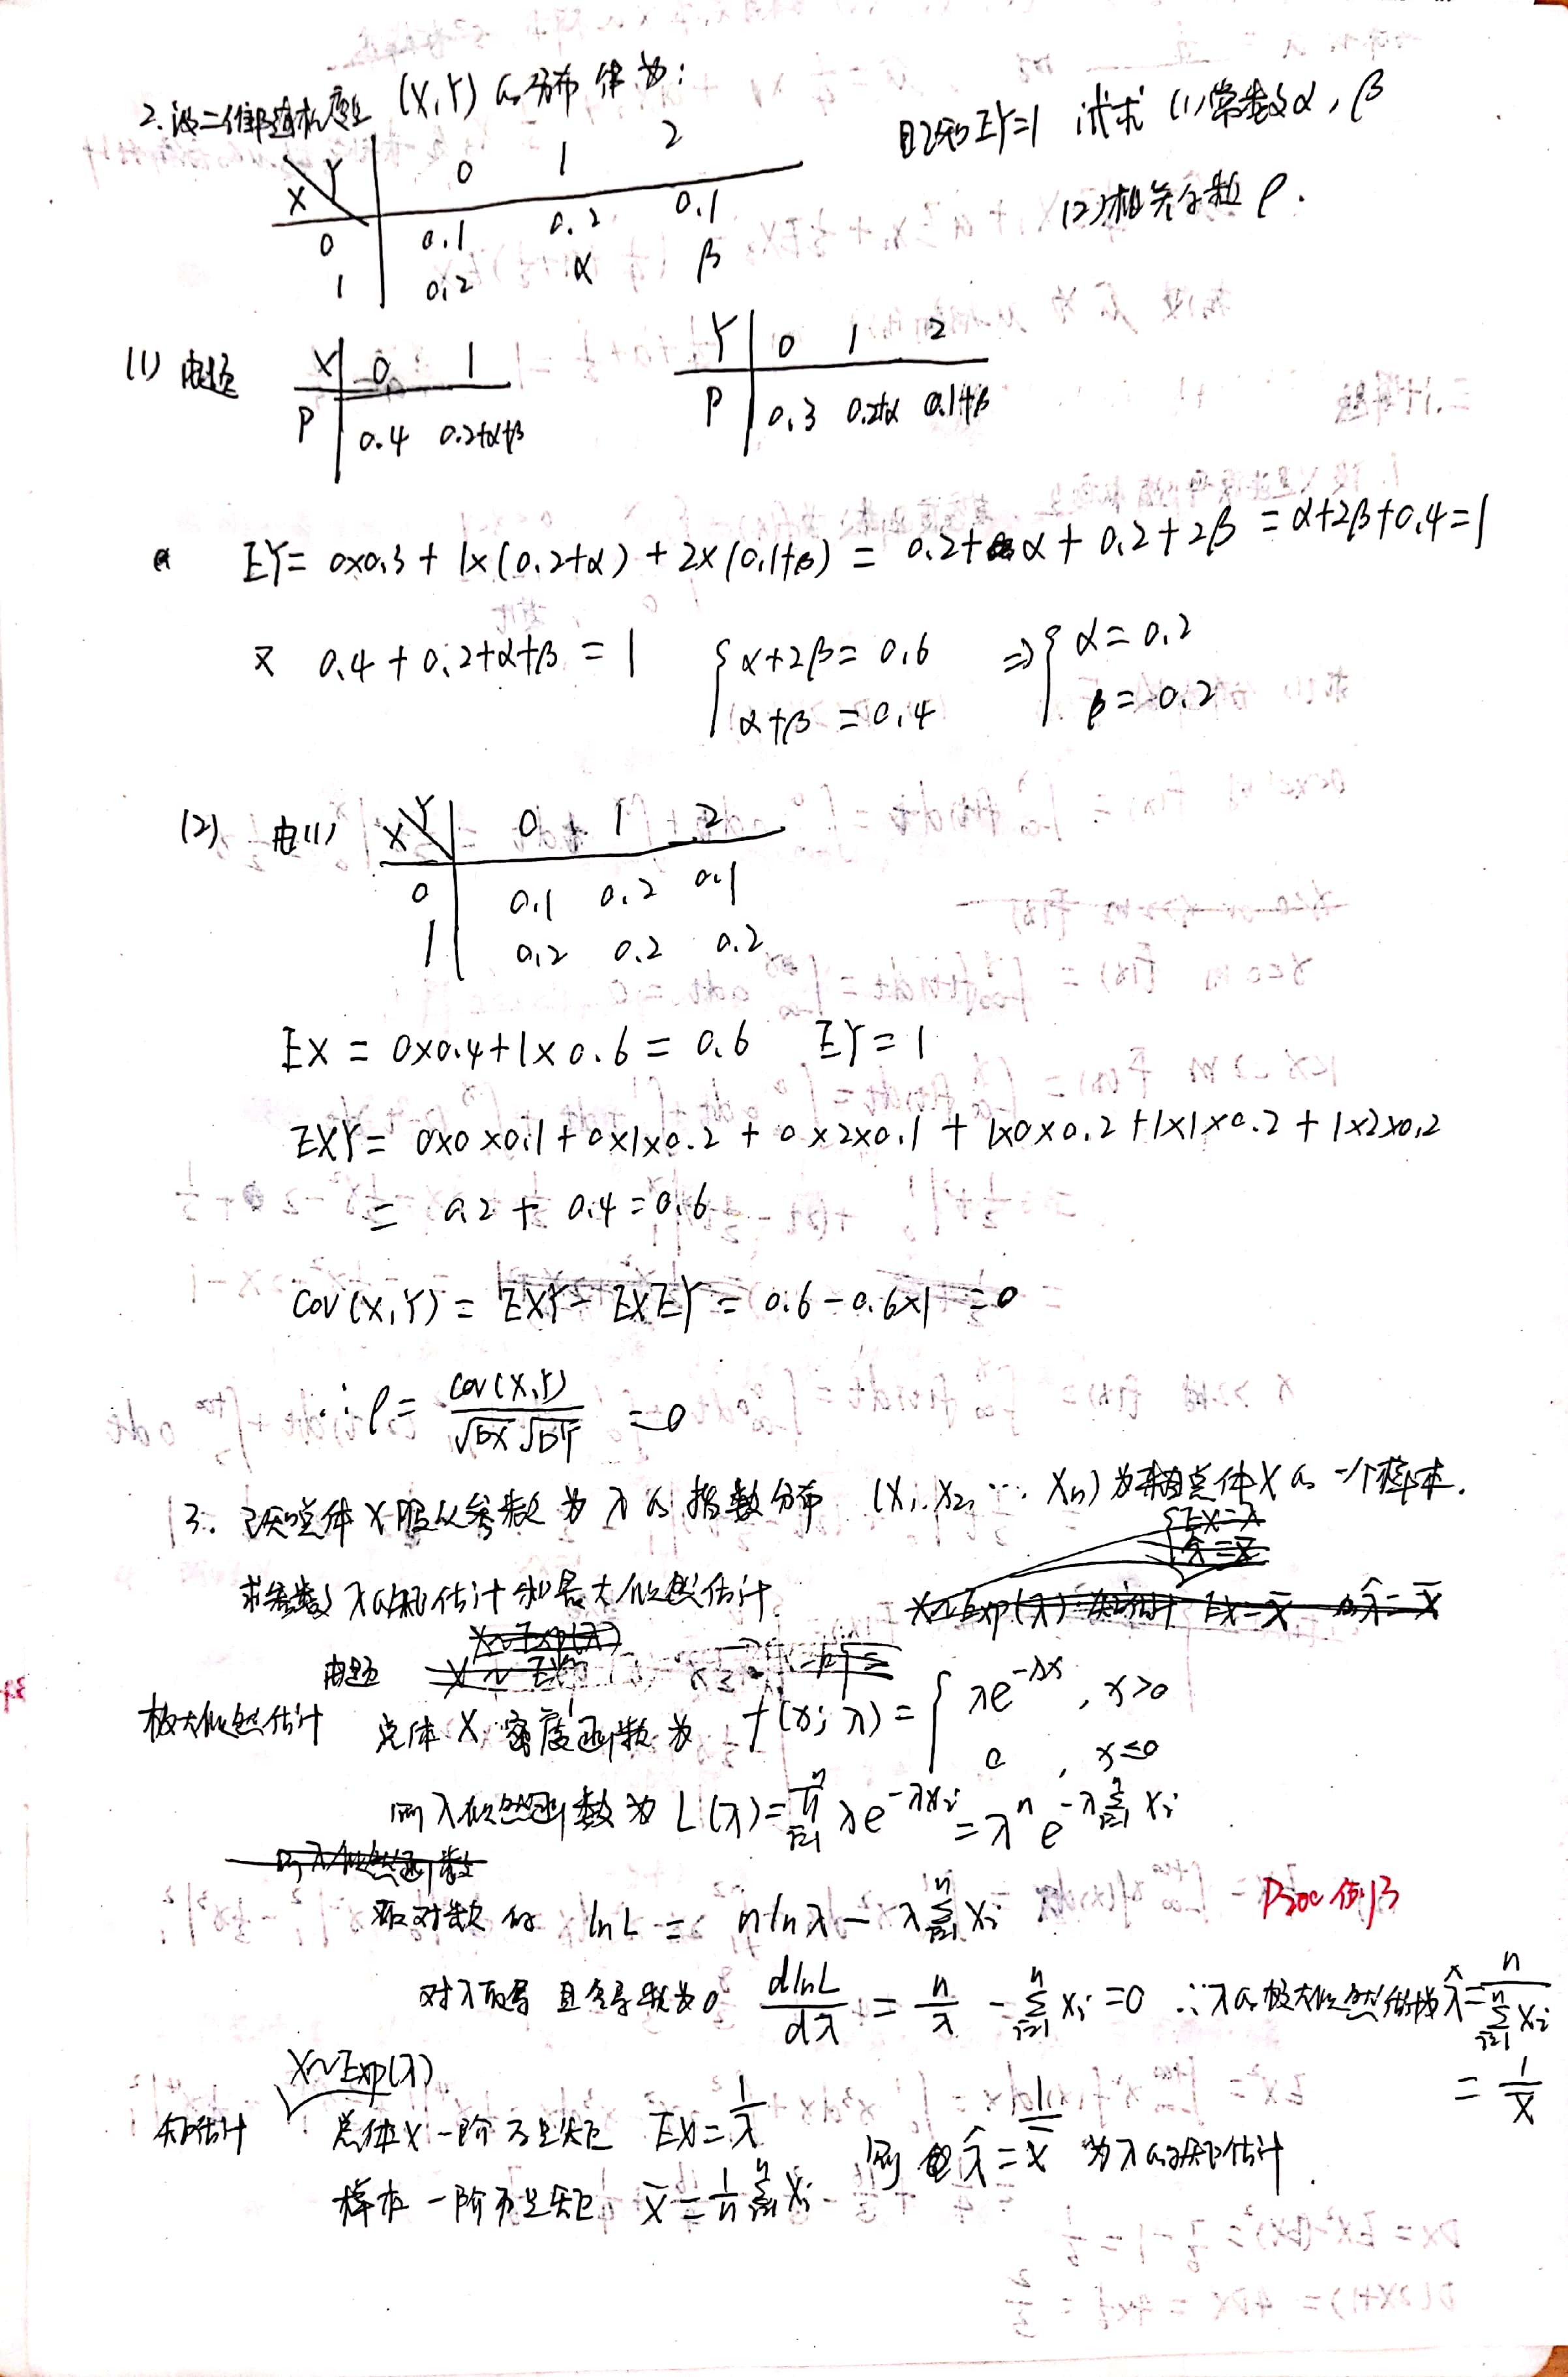 2. 设二维随机变量 (X,Y) 的分布律为: 且已知EY=1 试求 (1)常数α,β
X Y 0 1 2
(2)相关系数 ρ.
0 0.1 0.2 0.1
1 0.2 α β
(1) 由题 X 0 1 Y 0 1 2
P 0.4 0.2+α+β P 0.3 0.2+α 0.1+β
EY= 0×0.3 + 1×(0.2+α) + 2×(0.1+β) = 0.2+α + 0.2+2β = α+2β+0.4=1
又 0.4+0.2+α+β=1 { α+2β=0.6 ⇒ { α=0.2
α+β=0.4 β=0.2
(2) 由(1) X Y 0 1 2
0 0.1 0.2 0.1
1 0.2 0.2 0.2
EX = 0×0.4+1×0.6 = 0.6 EY=1
EXY= 0×0×0.1+0×1×0.2+0×2×0.1+1×0×0.2+1×1×0.2+1×2×0.2
= 0.2+0.4=0.6
Cov(X,Y)= EXY-EXEY= 0.6-0.6×1=0
∴ρ= Cov(X,Y)/√DX√DY =0
3. 已知总体X服从参数为λ的指数分布 (X1,X2,…Xn)为来自总体X的一个样本.
求参数λ的矩估计和最大似然估计
由题
极大似然估计 总体X密度函数为 f(x;λ)={ λe^-λx , x>0
0 , x≤0
则λ似然函数为 L(λ)=∏(i=1 n) λe^-λxi =λ^n e^-λΣ(i=1 n)xi
取对数得 lnL= nlnλ-λΣ(i=1 n)xi P200 例13
对λ求导 且令导数为0 dlnL/dλ = n/λ -Σ(i=1 n)xi=0 ∴λ的极大似然估计为 λ̂=n/Σ(i=1 n)xi
= 1/X̄
X~Exp(λ)
矩估计 总体X一阶原点矩 EX=1/λ 则 λ̂=1/X̄ 为λ的矩估计.
样本一阶原点矩 X̄=1/n Σ(i=1 n)Xi